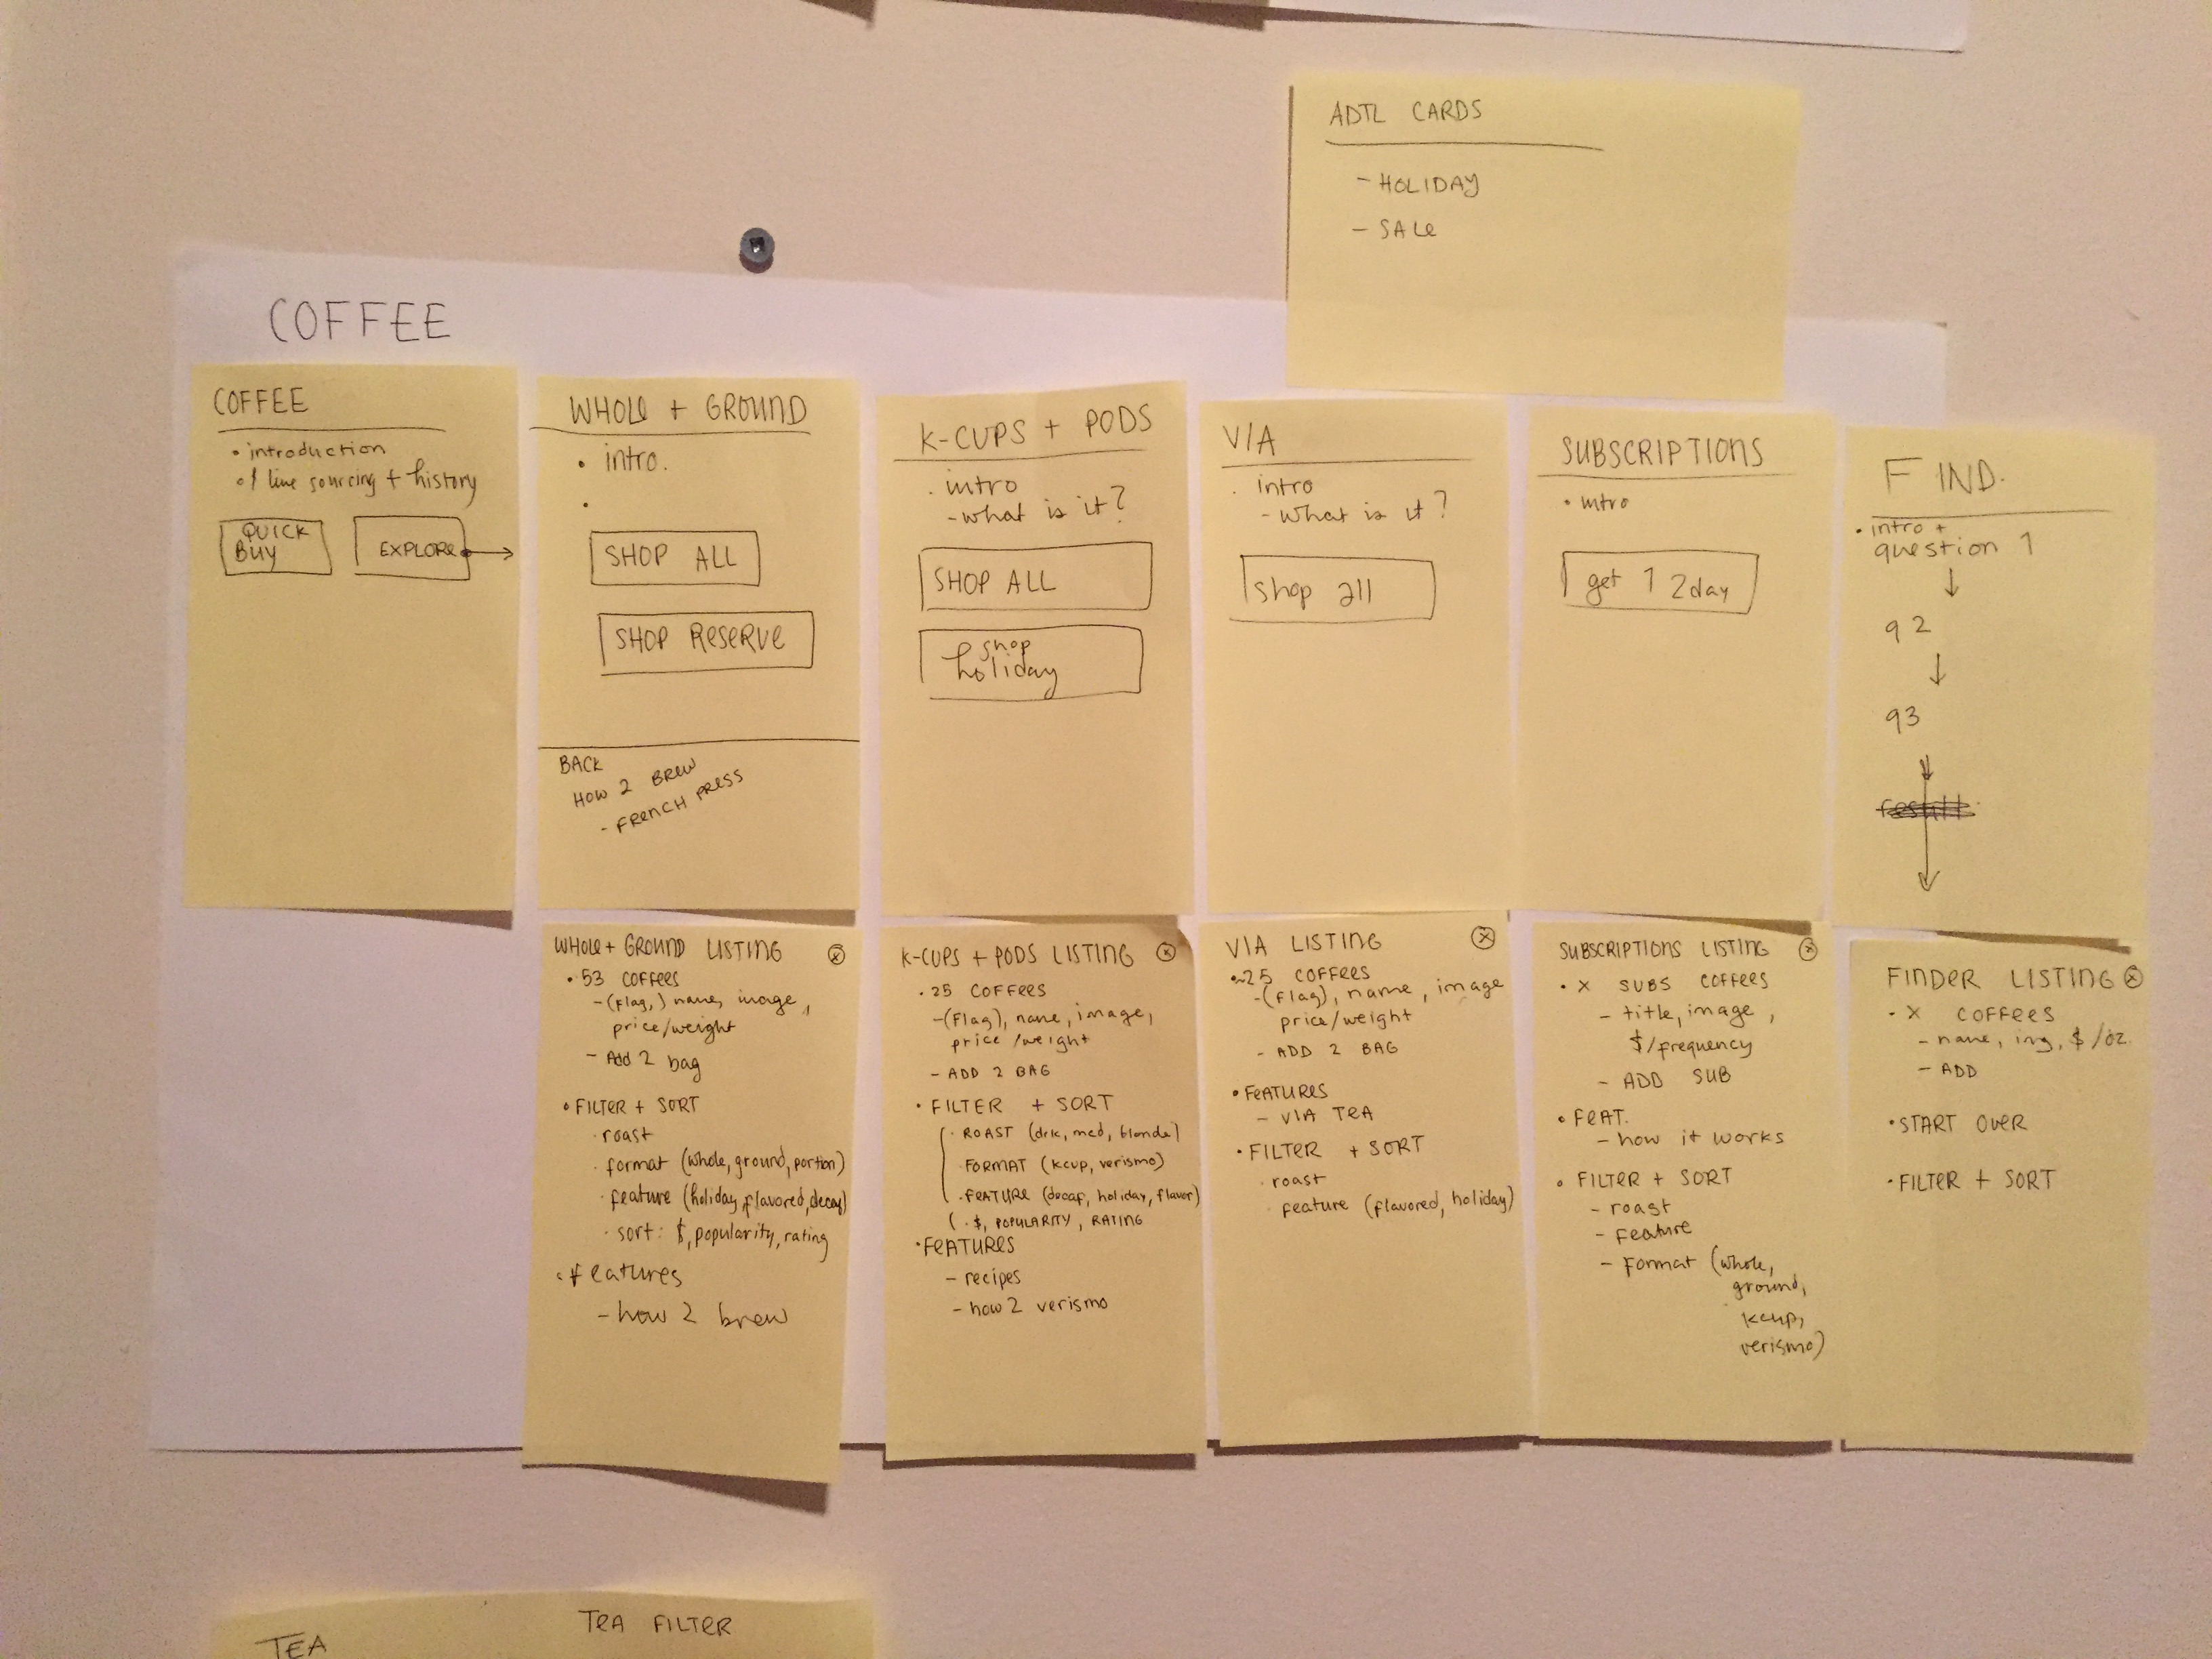 ADTL CARDS
- HOLIDAY
- SALE
COFFEE
COFFEE
• introduction
• 1 line sourcing + history
QUICK
BUY
EXPLORE
WHOLE + GROUND
• intro.
•
SHOP ALL
SHOP RESERVE
BACK
HOW 2 BREW
- FRENCH PRESS
K-CUPS + PODS
• intro
- what is it?
SHOP ALL
shop
holiday
VIA
• intro
- what is it?
shop all
SUBSCRIPTIONS
• intro
get 1 2day
FIND.
• intro +
question 1
↓
q2
↓
q3
↓
WHOLE + GROUND LISTING ⓧ
• 53 COFFEES
- (flag,) name, image,
price/weight
- Add 2 bag
• FILTER + SORT
• roast
• format (whole, ground, portion)
• feature (holiday, flavored, decaf)
• sort: $, popularity, rating
• features
- how 2 brew
K-CUPS + PODS LISTING ⓧ
• 25 COFFEES
- (flag), name, image,
price/weight
- ADD 2 BAG
• FILTER + SORT
• ROAST (drk, med, blonde)
FORMAT (kcup, verismo)
• FEATURE (decaf, holiday, flavor)
• $, POPULARITY, RATING
• FEATURES
- recipes
- how 2 verismo
VIA LISTING ⓧ
• ~25 COFFEES
- (flag), name, image
price/weight
- ADD 2 BAG
• FEATURES
- VIA TEA
• FILTER + SORT
• roast
• feature (flavored, holiday)
SUBSCRIPTIONS LISTING ⓧ
• X SUBS COFFEES
- title, image,
$/frequency
- ADD SUB
• FEAT.
- how it works
• FILTER + SORT
- roast
- feature
- format (whole,
ground,
kcup,
verismo)
FINDER LISTING ⓧ
• X COFFEES
- name, img, $/oz.
- ADD
• START OVER
• FILTER + SORT
TEA
TEA FILTER